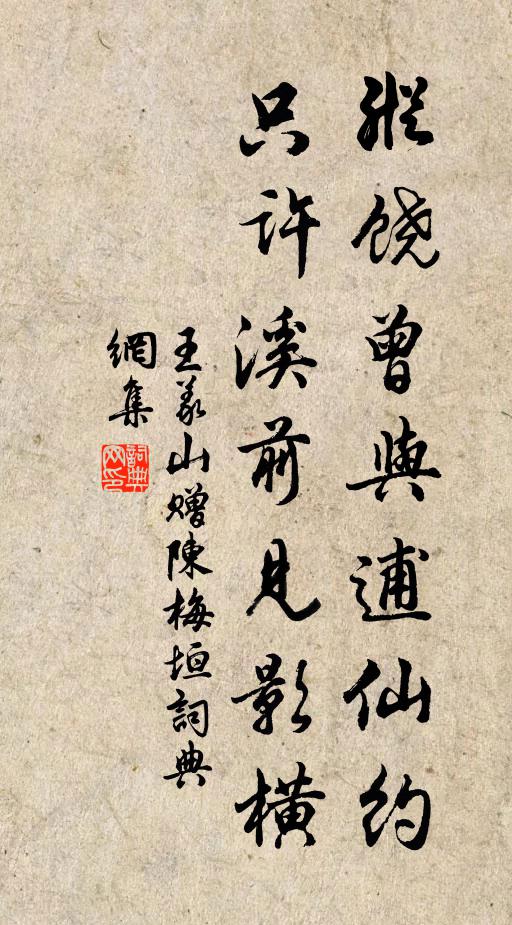 縱饒曾與逋仙約
只許溪前見影橫
王義山贈陳梅垣詞典
網集
詞典網印